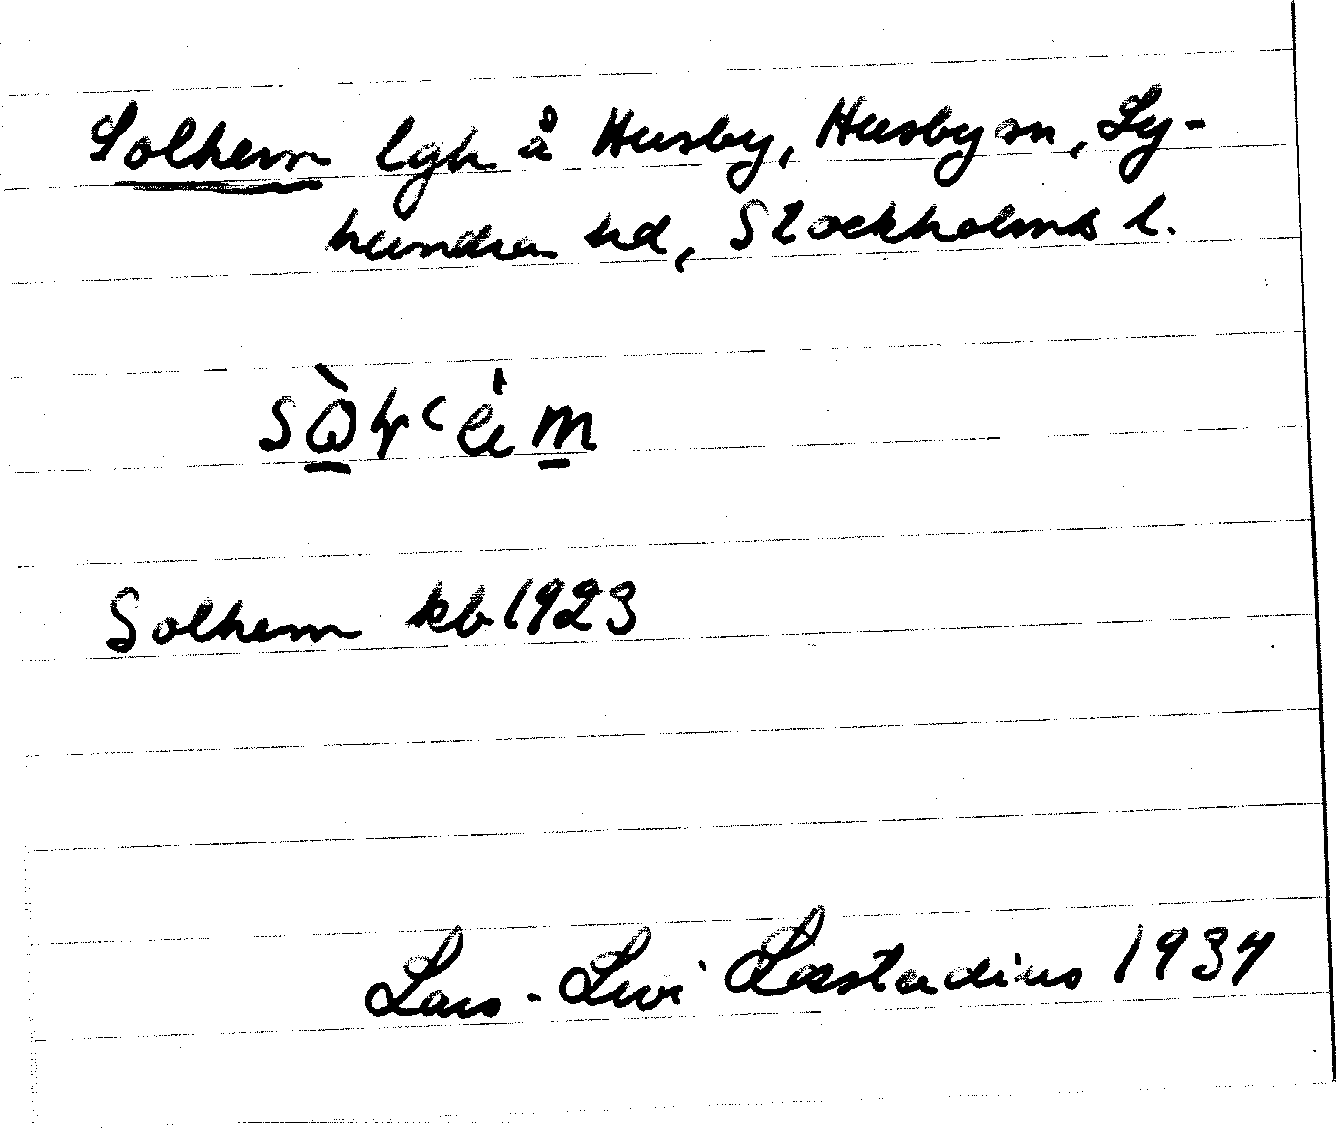 Solhem lgh å Husby, Husby sn, Ly-
hundra hd, Stockholms l.
Solhem kb 1923
Lars-Levi Læstadius 1934